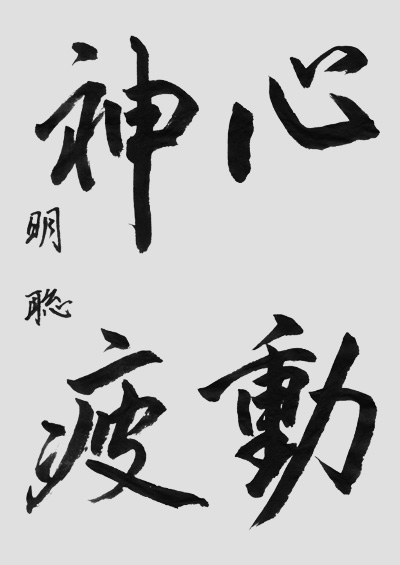 心動
神疲
明聡